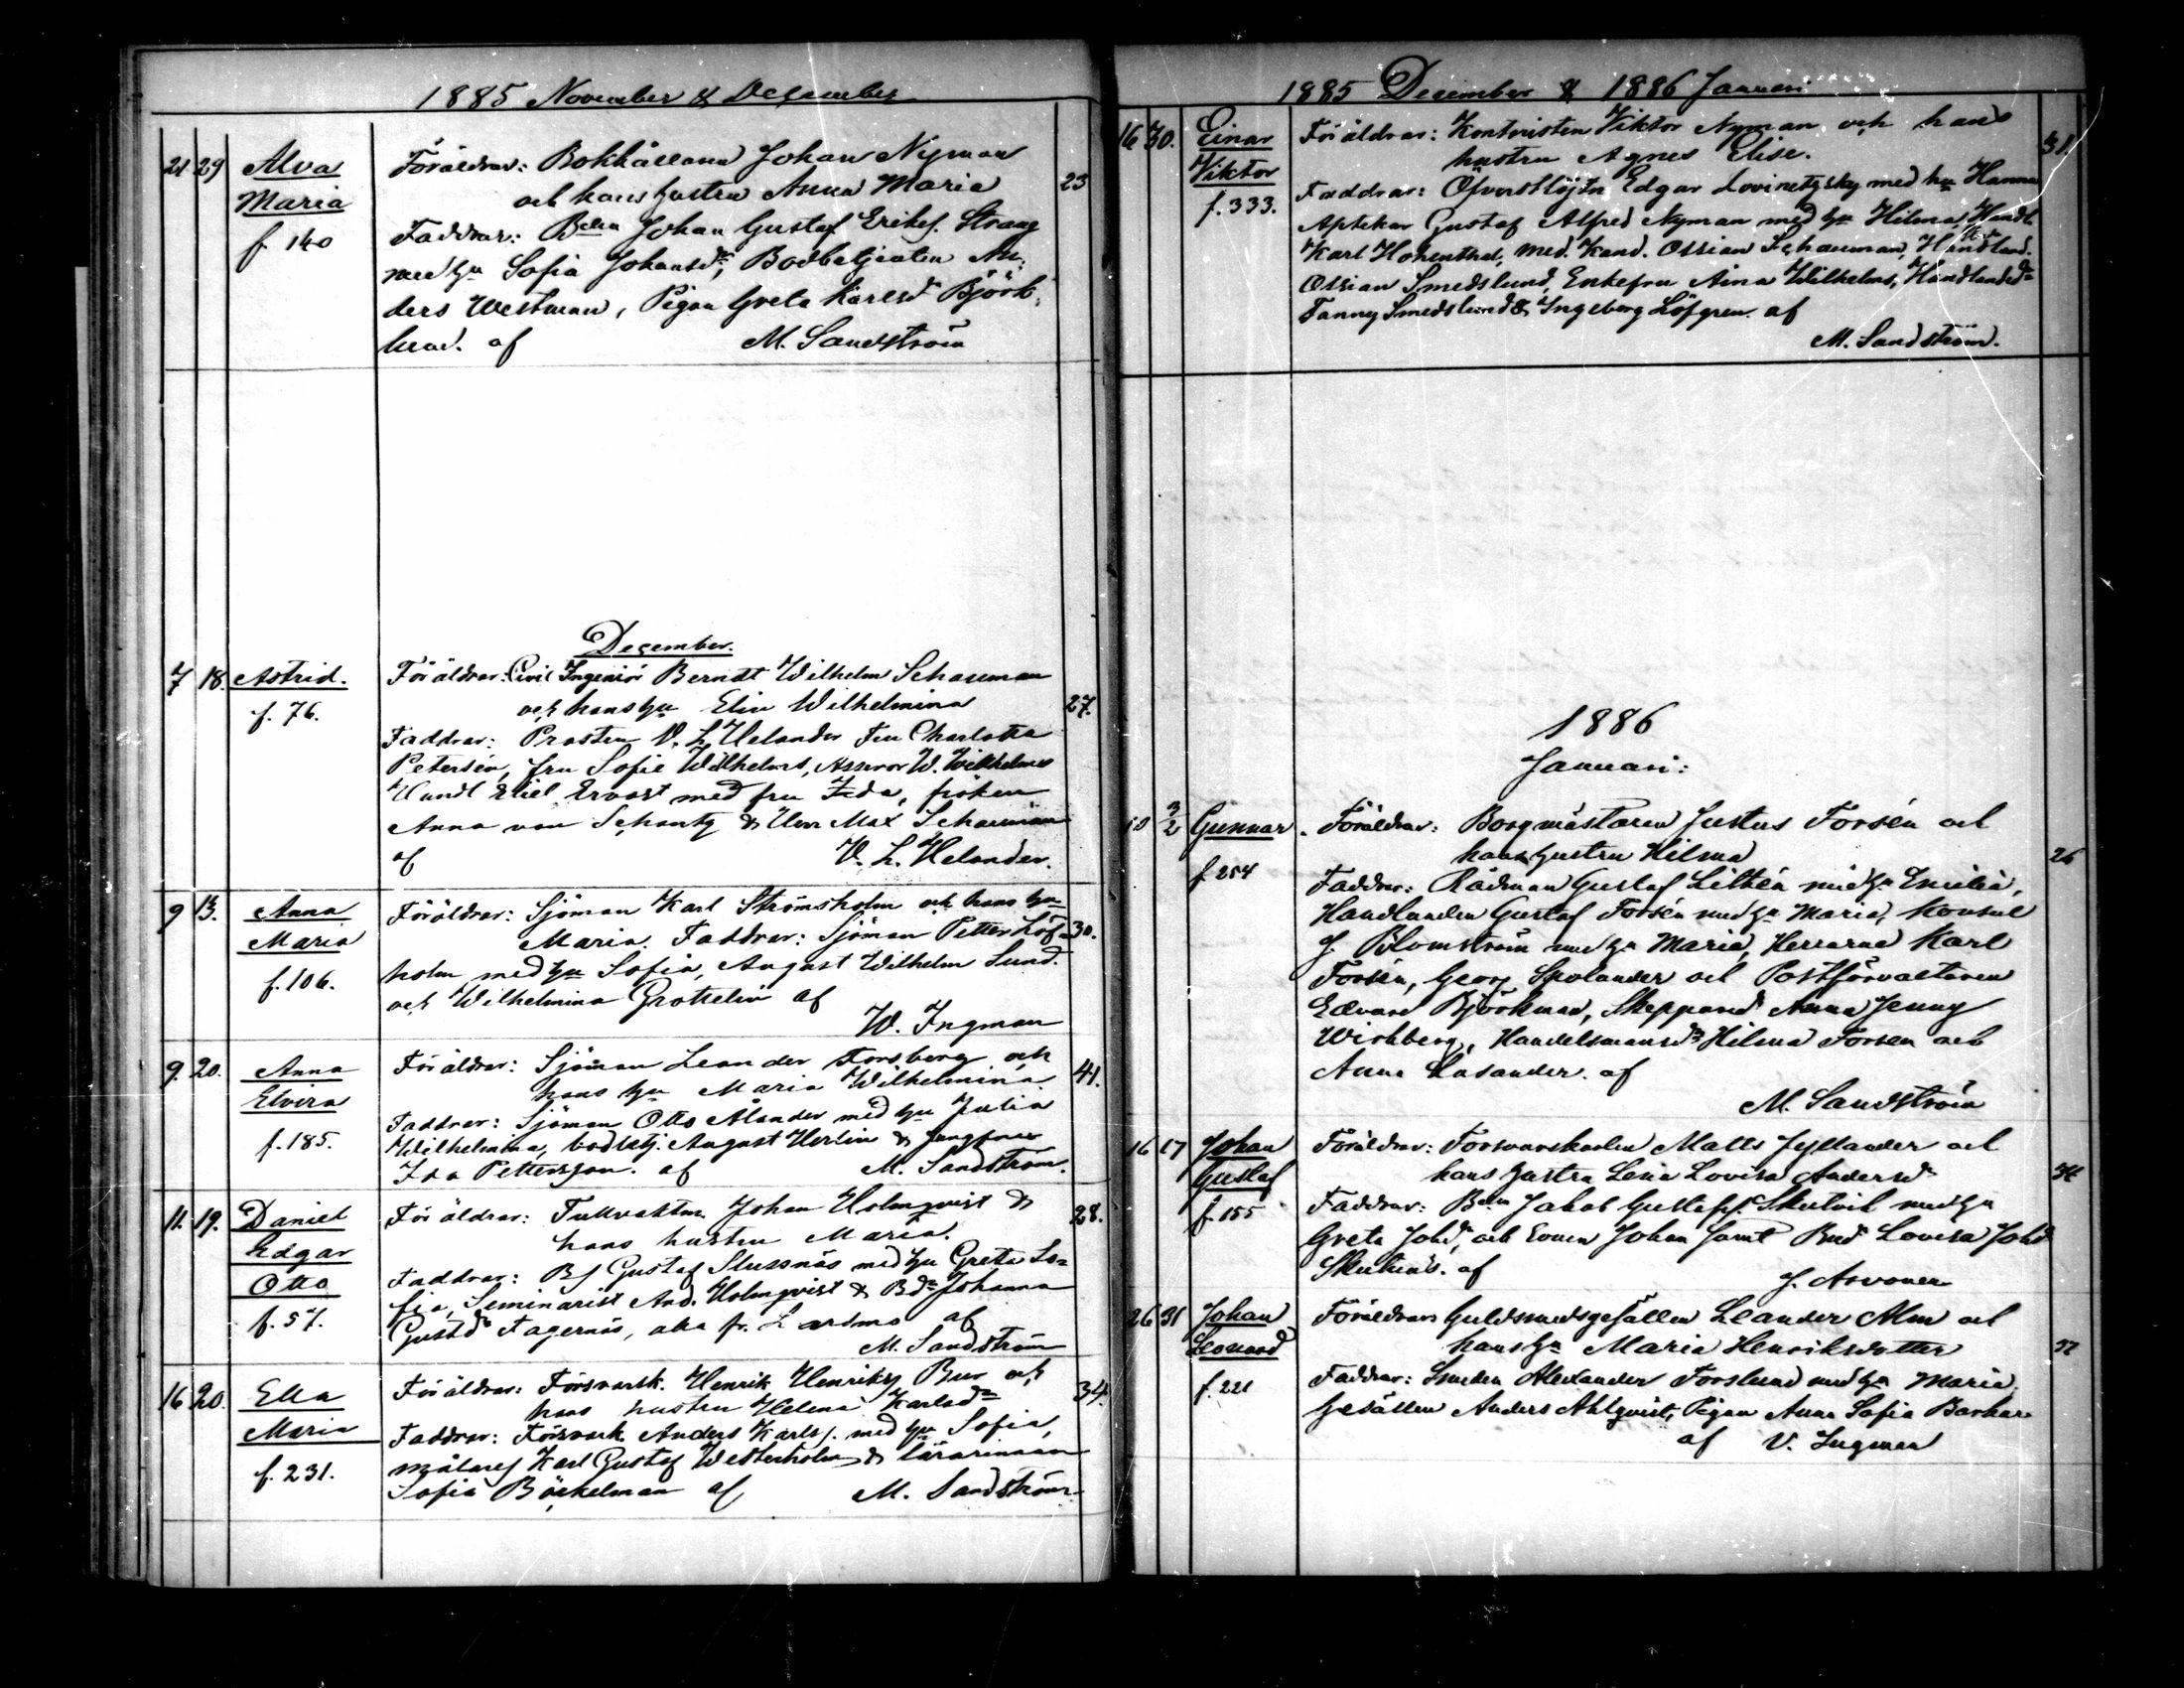 1885 November & December
21 29 Alva Föräldrar: Bokhållaren Johan Nyman
Maria och hans hustru Anna Maria 23
f. 140 Faddrar: Bdn Johan Gustaf Eriks. Straag
med hu Sofia Johansdr, Bodbetjenten An-
ders Westman, Pigan Greta Karlsd Björk-
lund. af M. Sandström
December.
7 18. Astrid. Föräldrar: Civil Ingeniör Berndt Wilhelm Schauman
f. 76. och hans hu Elin Wilhelmina 27.
Faddrar: Prosten V. L. Helander Fru Charlotta
Petersén, fru Sofie Wilhelms, Assessor W. Wilhelms
Handl Eliel Ervast med fru Ida, fröken
Anna von Schantz & Herr Max Schauman
af V. L. Helander.
9 13. Anna Föräldrar: Sjöman Karl Strömsholm och hans hu
Maria Maria. Faddrar: Sjöman Petter Löf- 30.
f. 106. holm med hu Sofia, August Wilhelm Lund.
och Wilhelmina Grottelin af
W. Ingman
9. 20. Anna Föräldrar: Sjöman Leander Forsberg och 41.
Elvira hans hu Maria Wilhelmina.
Faddrar: Sjöman Otto Ålander med hu Julia
f. 185. Wilhelmina, bodbetj. August Herlin & Jungfrun
Ida Pettersson. af M. Sandström.
11. 19. Daniel Föräldrar: Tullvaktm. Johan Holmqvist & 28.
Edgar hans hustru Maria.
Otto Faddrar: Bf Gustaf Slussnäs med hu Greta So-
f. 57. fia, Seminarist And. Holmqvist & Bdr Johanna
Gustdr Fagernäs, alla fr. Larsmo af
M. Sandström
16 20. Ella Föräldrar: Försvarsk. Henrik Henriks Bur och 34.
Maria hans hustru Helena Karlsdr
f. 231. Faddrar: Försvark Anders Karls. med hu Sofia,
målaref Karl Gustaf Westerholm & lärarinnan
Sofia Böckelman af M. Sandström
1885 December & 1886 Januari
16 30. Einar Föräldrar: Kontoristen Viktor Nyman och hans
Viktor hustru Agnes Elise. 31.
f. 333. Faddrar: Öfverstlöjtn Edgar Lovinetzsky med hu Hanna
Aptekar Gustaf Alfred Nyman med hu Hilma, Handl.
Karl Hohenthal, Med. Kand. Ossian Schauman, Handland.
Ossian Smedslund, Enkefru Aina Wilhelms, Handlandedr
Fanny Smedslund & Ingeborg Löfgren. af
M. Sandström.
1886
Januari:
10 3/2 Gunnar. Föräldrar: Borgmästaren Justus Forsén och
hans hustru Hilma 26
f 254 Faddrar: Rådman Gustaf Lithén med hu Emilia,
Handlanden Gustaf Forsén med hu Maria, Konsul
J. Blomström med hu Maria, Herrarne Karl
Forsén, Georg Skolander och Postförvaltaren
Edvard Björkman, Skeppared Anna Jenny
Wichberg, Handelsmansdr Hilma Forsén och
Anna Lasander. af
M. Sandström
16 17 Johan Föräldrar: Försvarskarlen Matts Jyllander och
Gustaf hans hustru Lena Lovisa Andersdr
f. 155 Faddrar: Bdn Jakob Gustafss. Skutvik med hu
Greta Johdr, och Johan Bnd Lovisa Johd
af J. Arvonen
26 31 Johan Föräldrar: Guldsmedsgesällen Leander Alm och
Leonard hans hu Maria Henriksdotter 37
f. 221 Faddrar: Smeden Alexander Forslund med hu Maria,
Gesällen Anders Ahlqvist, Pigan Anna Sofia Backar
af V. Ingman